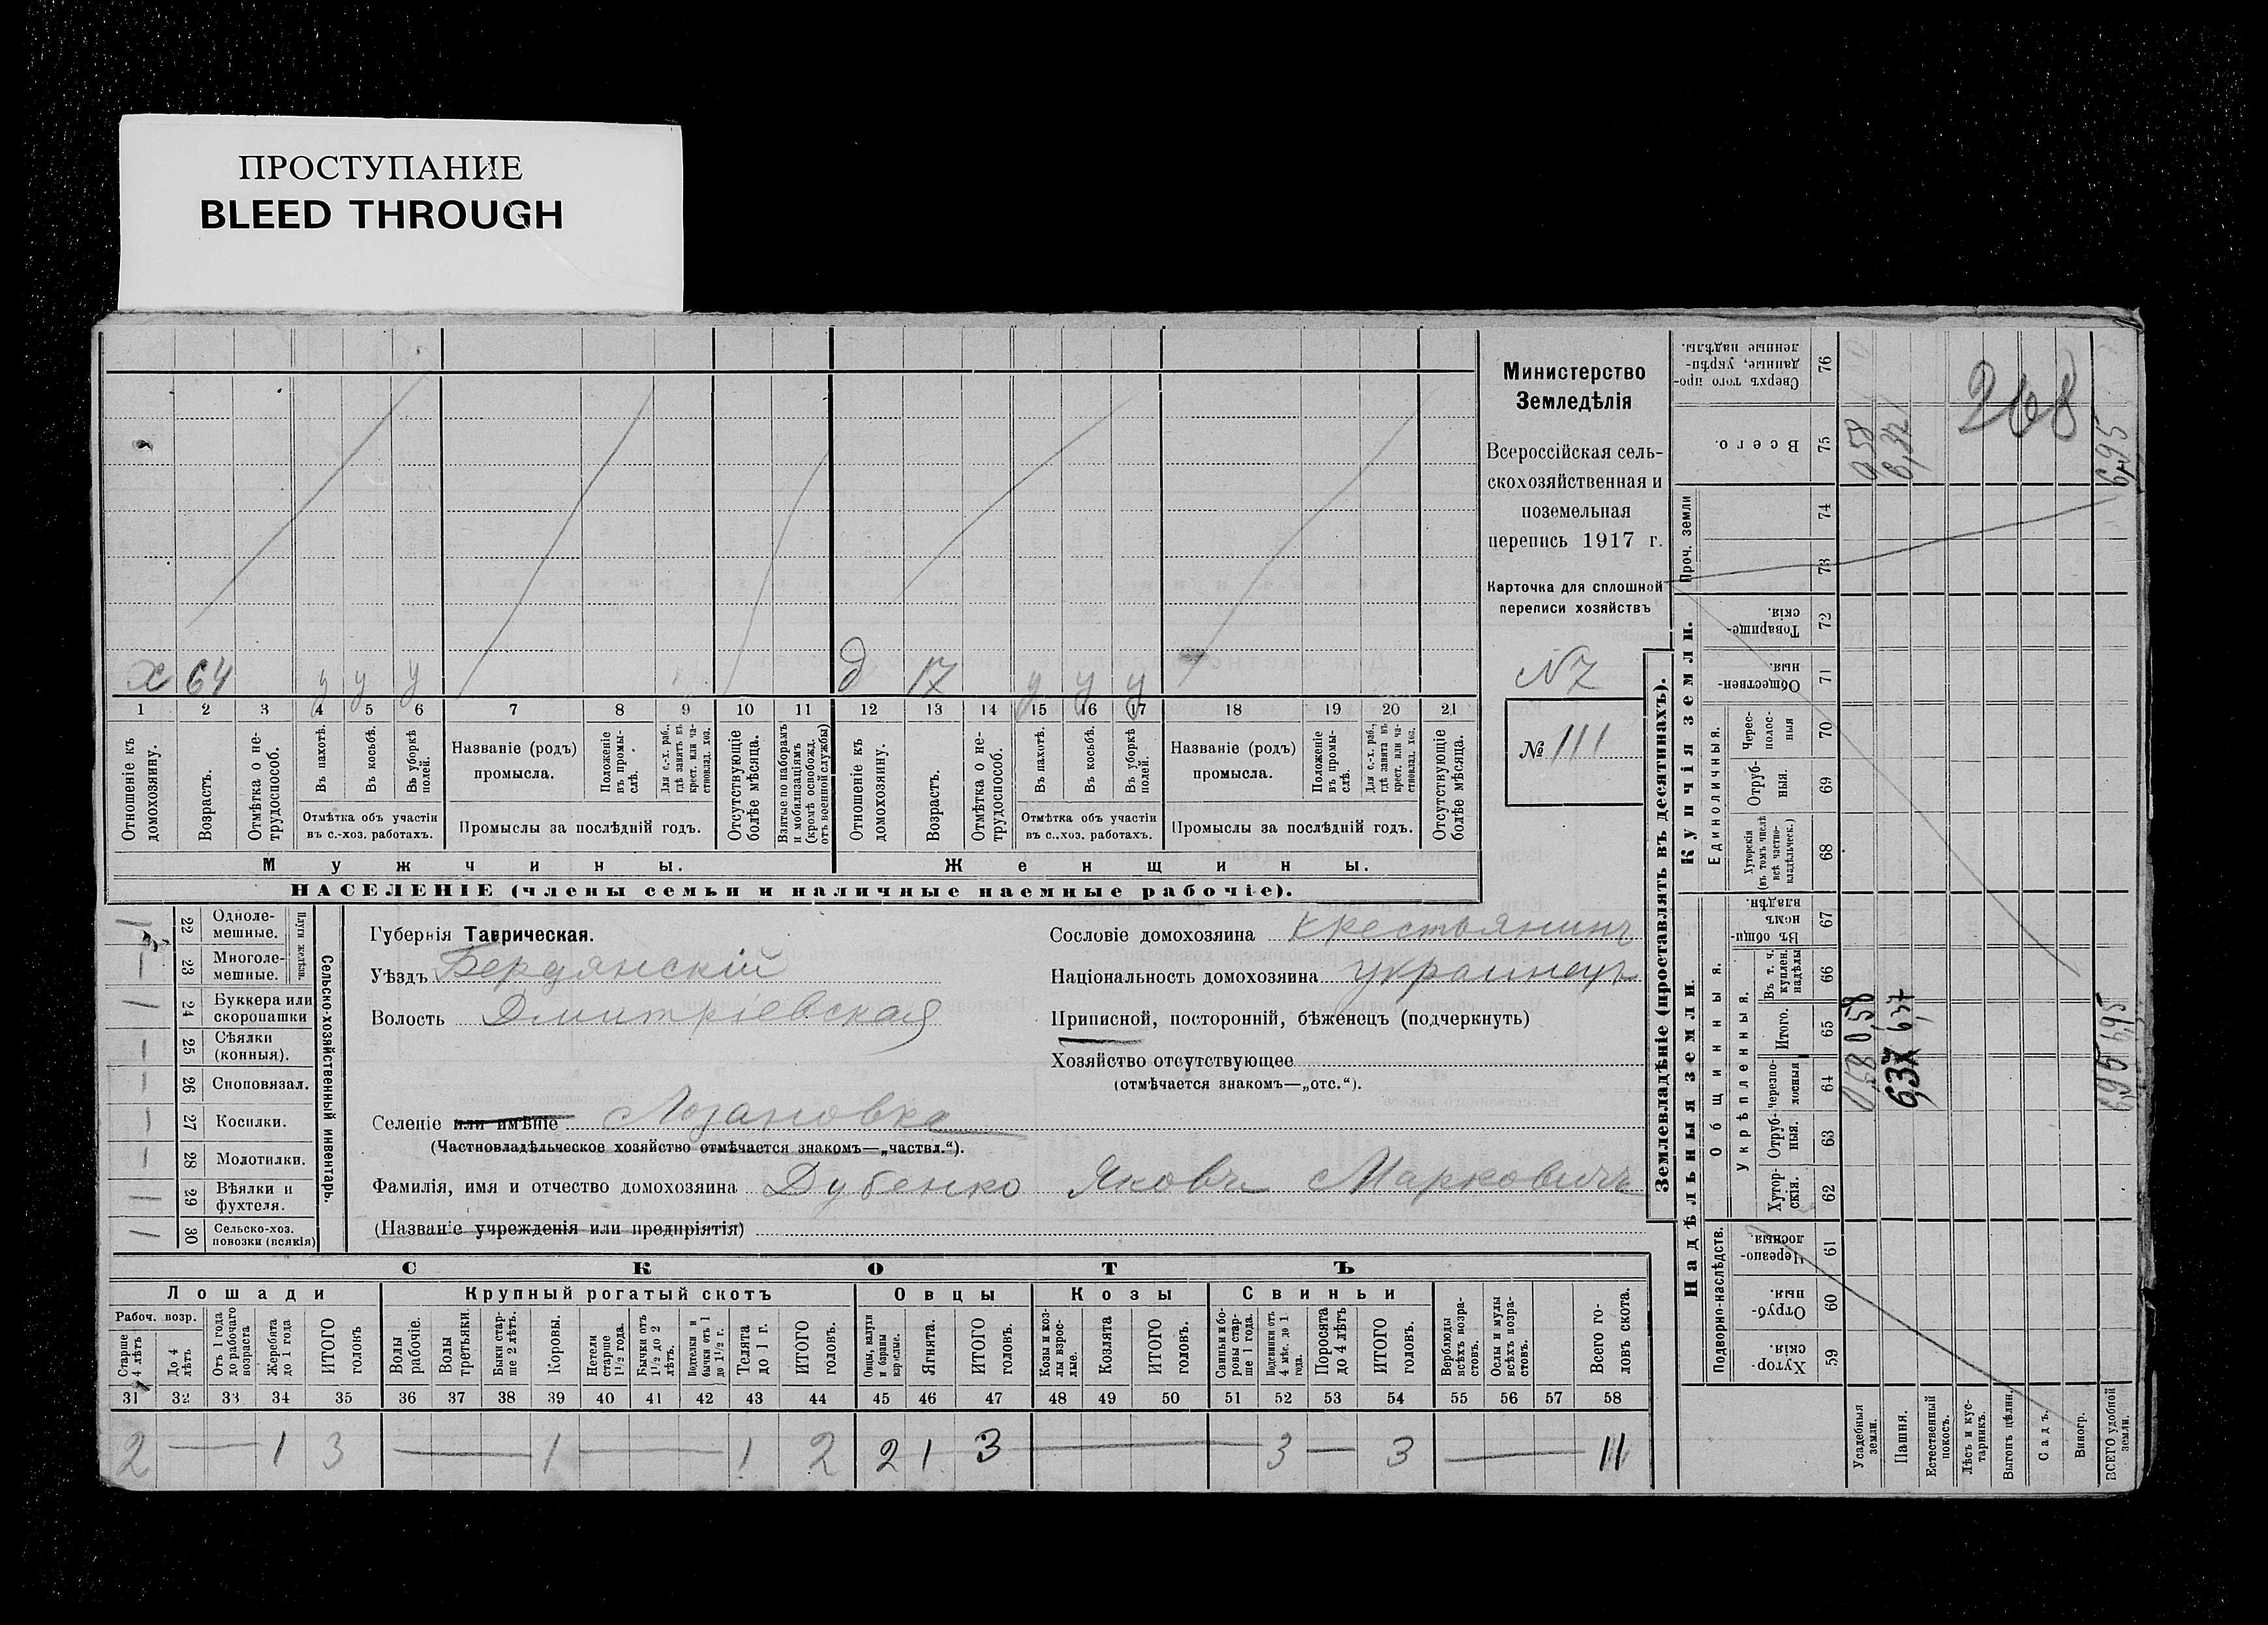 ПРОСТУПАНИЕ
BLEED THROUGH
х 64 у у у д 17 у у у
1 2 3 4 5 6 7 8 9 10 11 12 13 14 15 16 17 18 19 20 21
Отношеніе къ домохозяину.
Возрастъ.
Отмѣтка о нетрудоспособ.
Въ пахотѣ.
Въ косьбѣ.
Въ уборкѣ полей.
Отмѣтка объ участіи
въ с.-хоз. работахъ.
Названіе (родъ)
промысла.
Положеніе въ промыслѣ.
Для с.-х. раб., гдѣ занятъ въ крест. или частновлад. хоз.
Промыслы за послѣдній годъ.
Отсутствующіе болѣе мѣсяца.
Взятые по наборамъ и мобилизаціямъ (кромѣ освобожд. отъ военной службы)
Отношеніе къ домохозяину.
Возрастъ.
Отмѣтка о нетрудоспособ.
Въ пахотѣ.
Въ косьбѣ.
Въ уборкѣ полей.
Отмѣтка объ участіи
въ с..хоз. работахъ.
Названіе (родъ)
промысла.
Положеніе въ промыслѣ.
Для с.-х. раб., гдѣ занята въ крест. или частновлад. хоз.
Промыслы за послѣдній годъ.
Отсутствующіе болѣе мѣсяца.
Мужчины. Женщины.
НАСЕЛЕНІЕ (члены семьи и наличные наемные рабочіе).
Министерство
Земледѣлія
Всероссійская сель-
скохозяйственная и
поземельная
перепись 1917 г.
Карточка для сплошной
переписи хозяйствъ
№ 111
Плуги желѣзн.
22 Одноле-
мешные.
23 Многоле-
мешные.
24 Буккера или
скоропашки
25 Сѣялки
(конныя).
26 Сноповязал.
27 Косилки.
28 Молотилки.
29 Вѣялки и
фухтеля.
30 Сельско-хоз.
повозки (всякія)
Сельско-хозяйственный инвентарь.
Губернія Таврическая.
Уѣздъ Бердянскій
Волость Дмитріевская
Сословіе домохозяина крестьянинъ
Національность домохозяина украинецъ
Приписной, посторонній, бѣженецъ (подчеркнуть)
Хозяйство отсутствующее
(отмѣчается знакомъ—„отс.“).
Селеніе или имѣніе Лозановка
(Частновладѣльческое хозяйство отмѣчается знакомъ—„частвл.“).
Фамилія, имя и отчество домохозяина Дубенко Яковъ Марковичъ
(Названіе учрежденія или предпріятія)
СКОТЪ
Лошади Крупный рогатый скотъ Овцы Козы Свиньи
Рабоч. возр.
Старше 4 лѣтъ
До 4 лѣтъ
Отъ 1 года до рабочаго возраста
Жеребята до 1 года
ИТОГО головъ
Волы рабочіе.
Волы третьяки.
Быки старше 2 лѣтъ.
Коровы.
Нетели старше 1½ года.
Бычки отъ 1½ до 2 лѣтъ.
Подтелки и бычки отъ 1 до 1½ г.
Телята до 1 г.
ИТОГО головъ.
Овцы, валухи и бараны взрослые.
Ягнята.
ИТОГО головъ.
Козы и козлы взрослые.
Козлята
ИТОГО головъ.
Свиньи и боровы старше 1 года.
Подсвинки отъ 4 мѣс. до 1 года.
Поросята до 4 лѣтъ
ИТОГО головъ.
Верблюды всѣхъ возрастовъ.
Ослы и мулы всѣхъ возрастовъ.
Всего головъ скота.
31 32 33 34 35 36 37 38 39 40 41 42 43 44 45 46 47 48 49 50 51 52 53 54 55 56 57 58
2 — 1 3 — 1 — 1 2 2 1 3 — 3 — 3 — 11
Землевладѣніе (проставлять въ десятинахъ).
Купчія земли.
Надѣльныя земли.
Сверхъ того проданные, укрѣпленные надѣлы. 76
Всего. 75
Проч. земли 74 73
Товарищескія. 72
Общественныя. 71
Единоличныя.
Чересполосныя 70
Отрубныя. 69
Хуторскія (въ томъ числѣ всѣ частновладѣльческ.) 68
Общинныя.
Въ общинномъ владѣн. 67
Укрѣпленныя.
Въ т. ч. куплен. надѣлы 66
Итого. 65
Черезполосныя 64
Отрубныя. 63
Хуторскія. 62
Подворно-наслѣдств.
Черезполосныя 61
Отрубныя. 60
Хуторскія. 59
Усадебныя земли.
Пашня.
Естественный покосъ.
Лѣсъ и кустарникъ.
Выгонъ цѣлин.
Садъ.
Виногр.
ВСЕГО удобной земли.
268
0,58
6,95
0,58 0,58
6,37 6,37
6,95 6,95